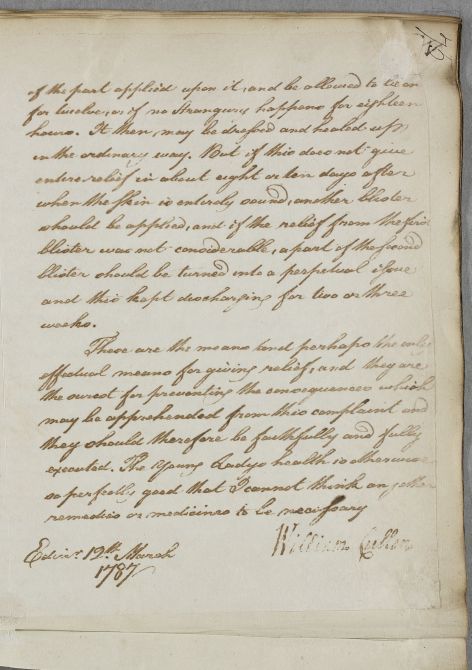 of the part applied upon it, and be allowed to lie on
for twelve, or if no Strangury happens for eighteen
hours. It then, may be dressed and healed up
in the ordinary way. But if this does not give
entire relief in about eight or ten days after
when the Skin is entirely sound, another blister
should be applied, and if the relief from the first
blister was not considerable, a part of the second
blister should be turned into a perpetual issue
and this kept discharging for two or three
weeks.
These are the means and perhaps the only
effectual means for giving relief, and they are
the surest for preventing the consequences which
may be apprehended from this complaint and
they should therefore be faithfully and fully
executed. The Young Ladys health is otherwise
so perfectly good that I cannot think any other
remedies or medicines to be necessary
William Cullen
Edinr. 19th. March
1787